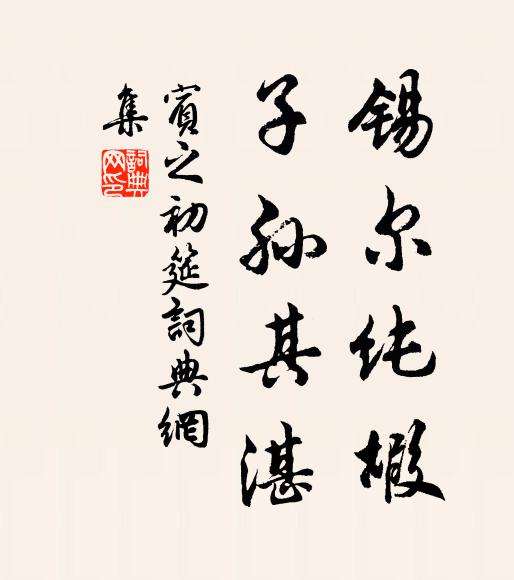 錫尔純嘏
子孫其湛
賓之初筵詞典網
集
詞典
网印